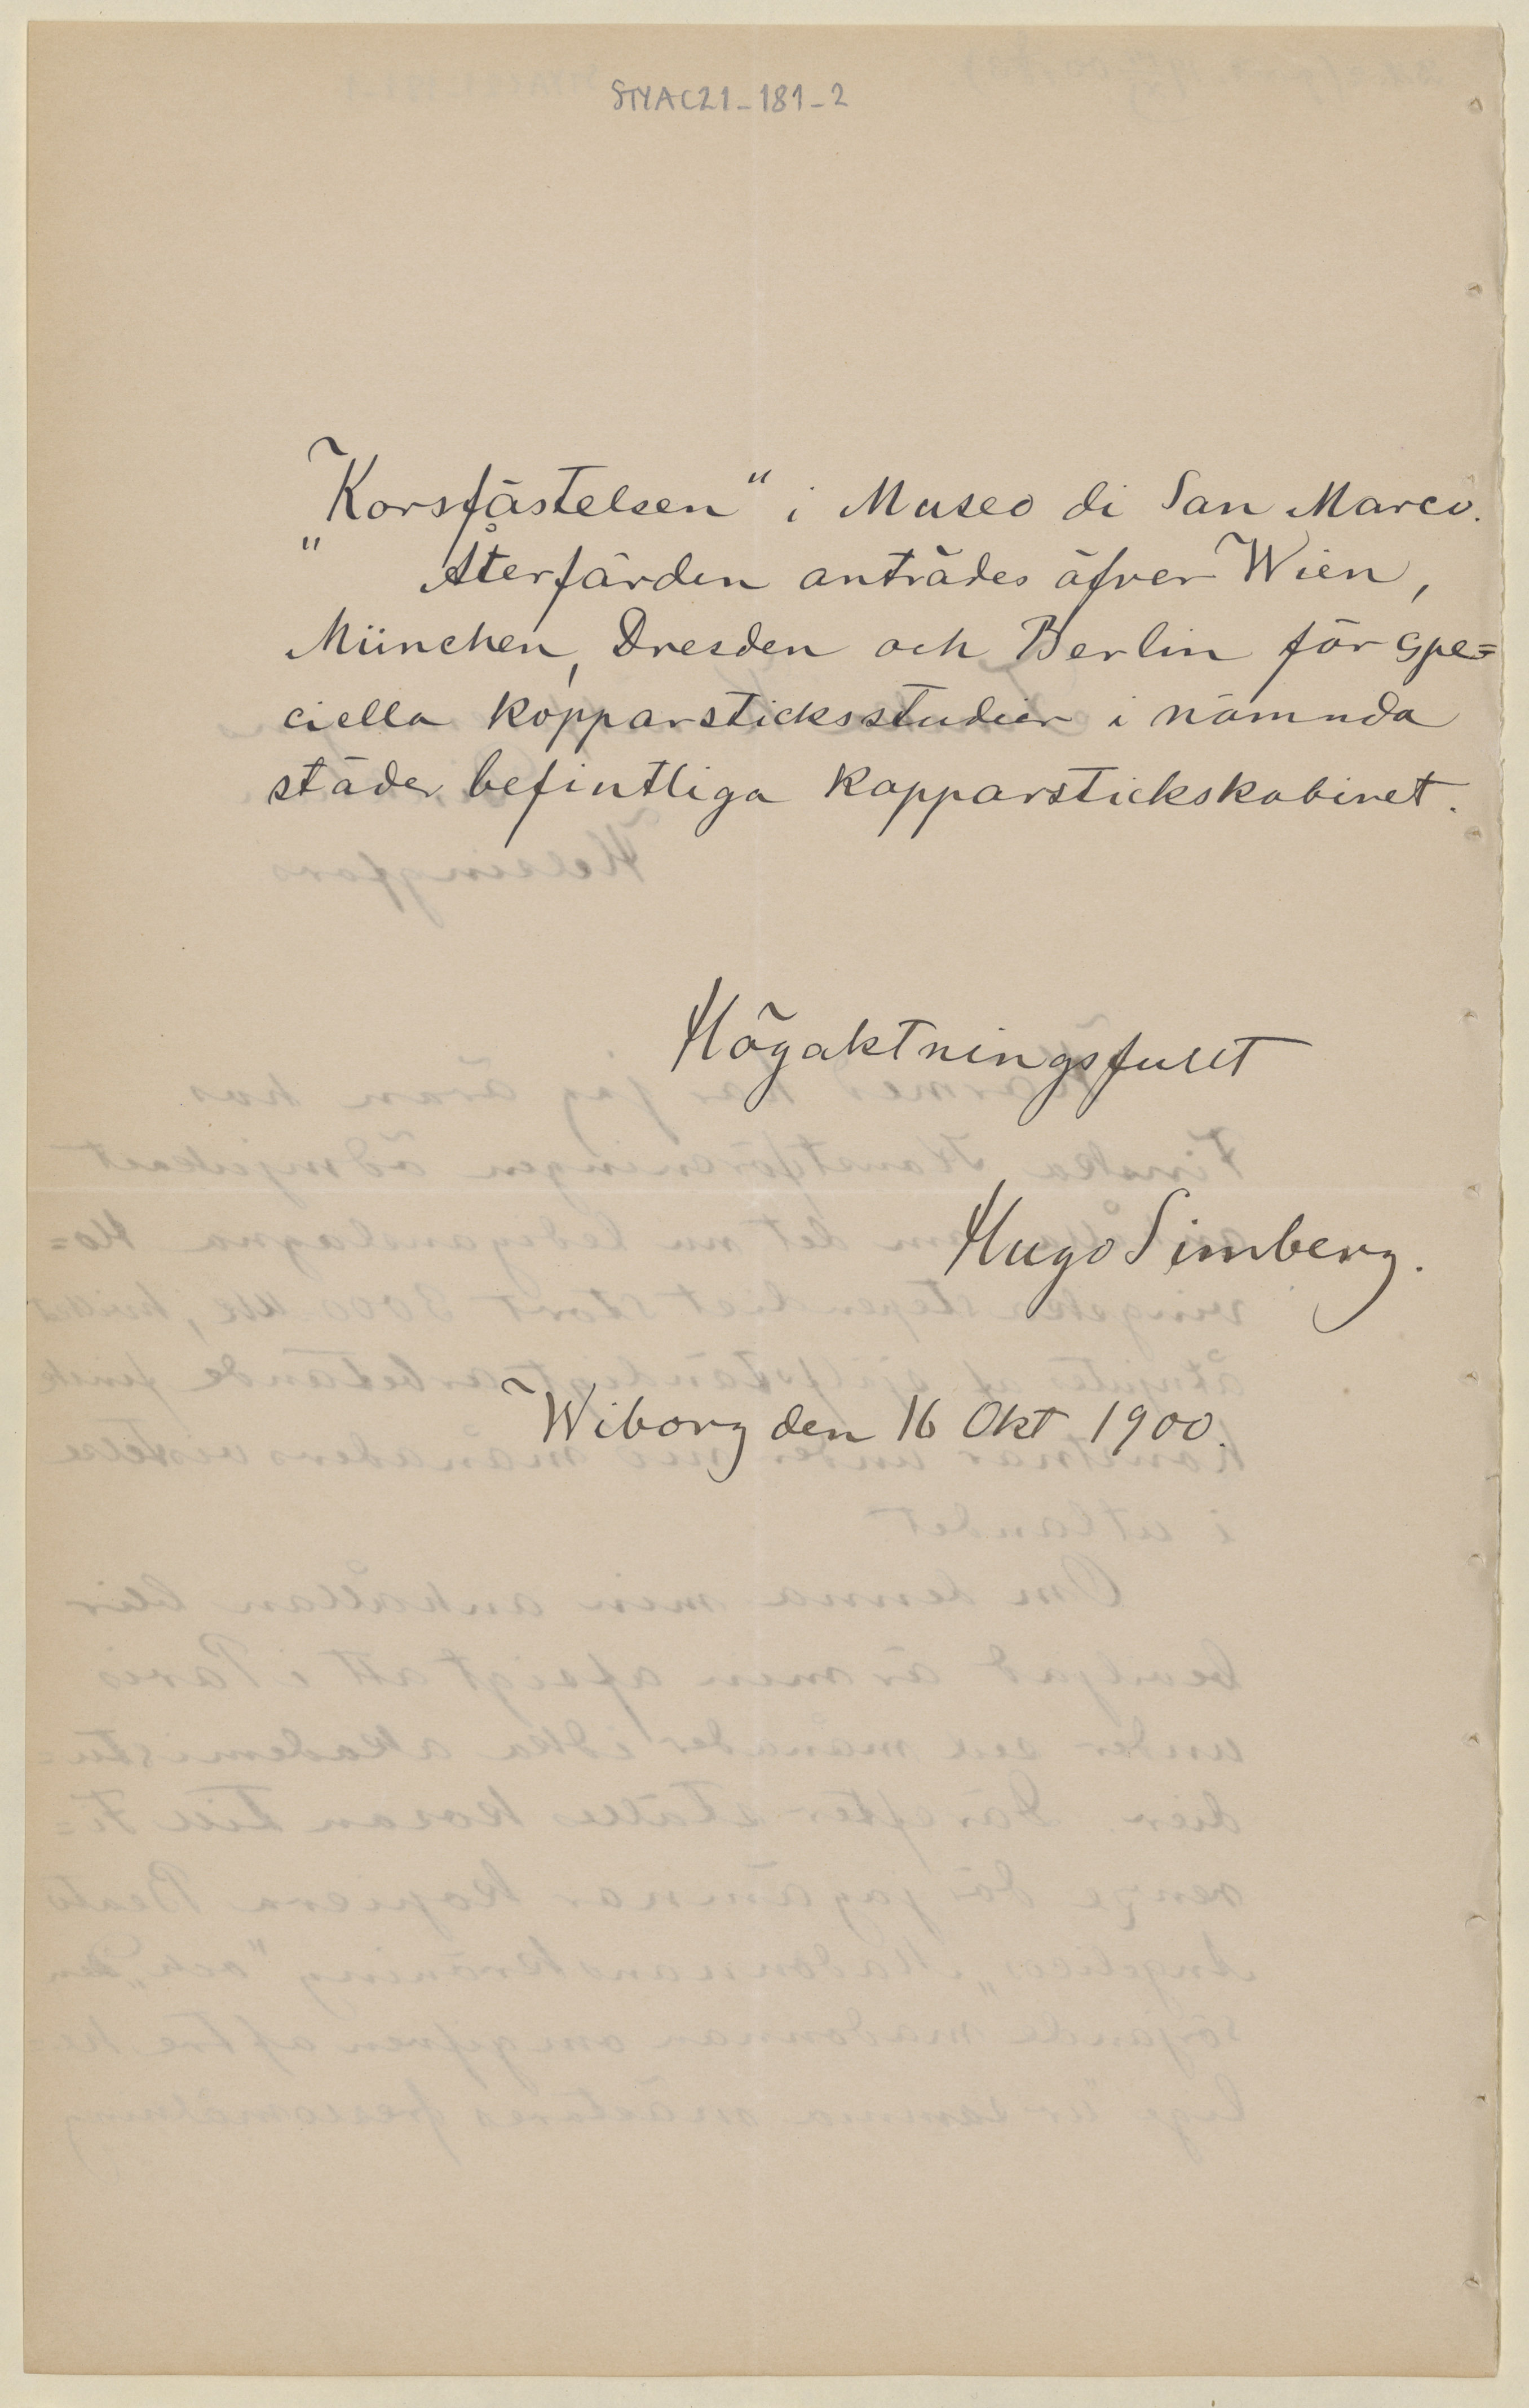 STYAC21-181-2
„Korsfästelsen“ i Museo di San Marco.
Återfärden anträdes äfver Wien,
München, Dresden och Berlin för spe=
ciella kopparsticksstudier i nämnda
städer befintliga kopparstickskabinet.
Högaktningsfullt
Hugo Simberg.
Wiborg den 16 Okt 1900.